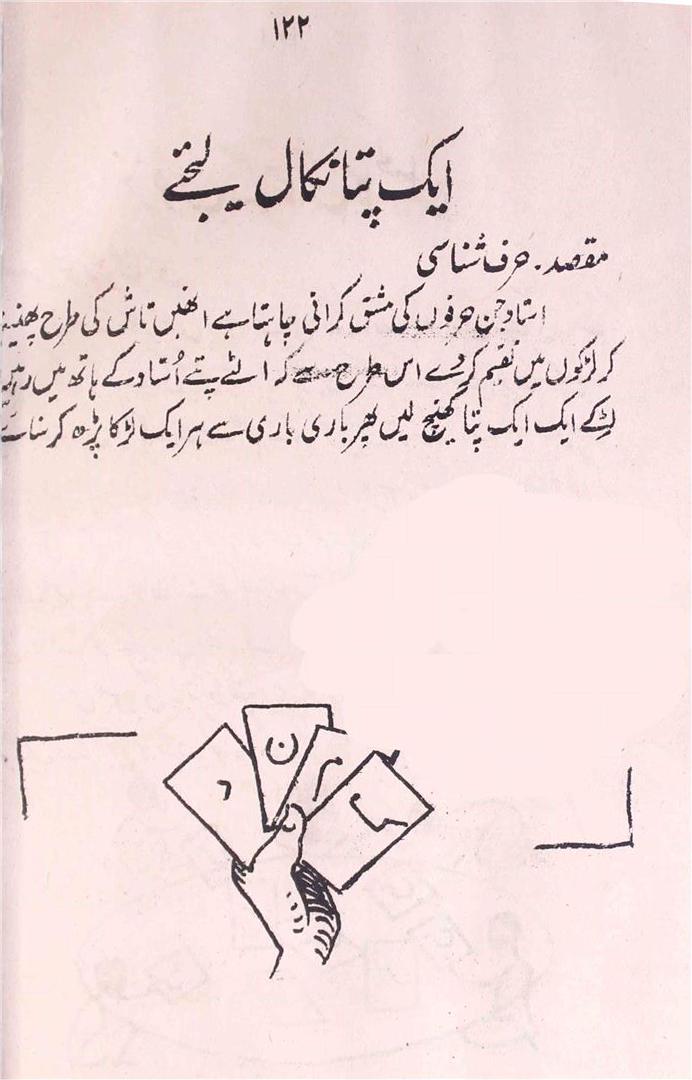 ۱۲۲
ایک پتا نکال لیجئے
مقصد۔ حرف شناسی
استاد جن حرفوں کی مشق کرانی چاہتا ہے انھیں تاش کی طرح پھینٹ
کر لڑکوں میں تقسیم کر دے اس طرح سے کہ الٹے پتے اُستاد کے ہاتھ میں رہیں
لڑکے ایک ایک پتا کھینچ لیں پھر باری باری سے ہر ایک لڑکا پڑھ کر سنائے
ن
د